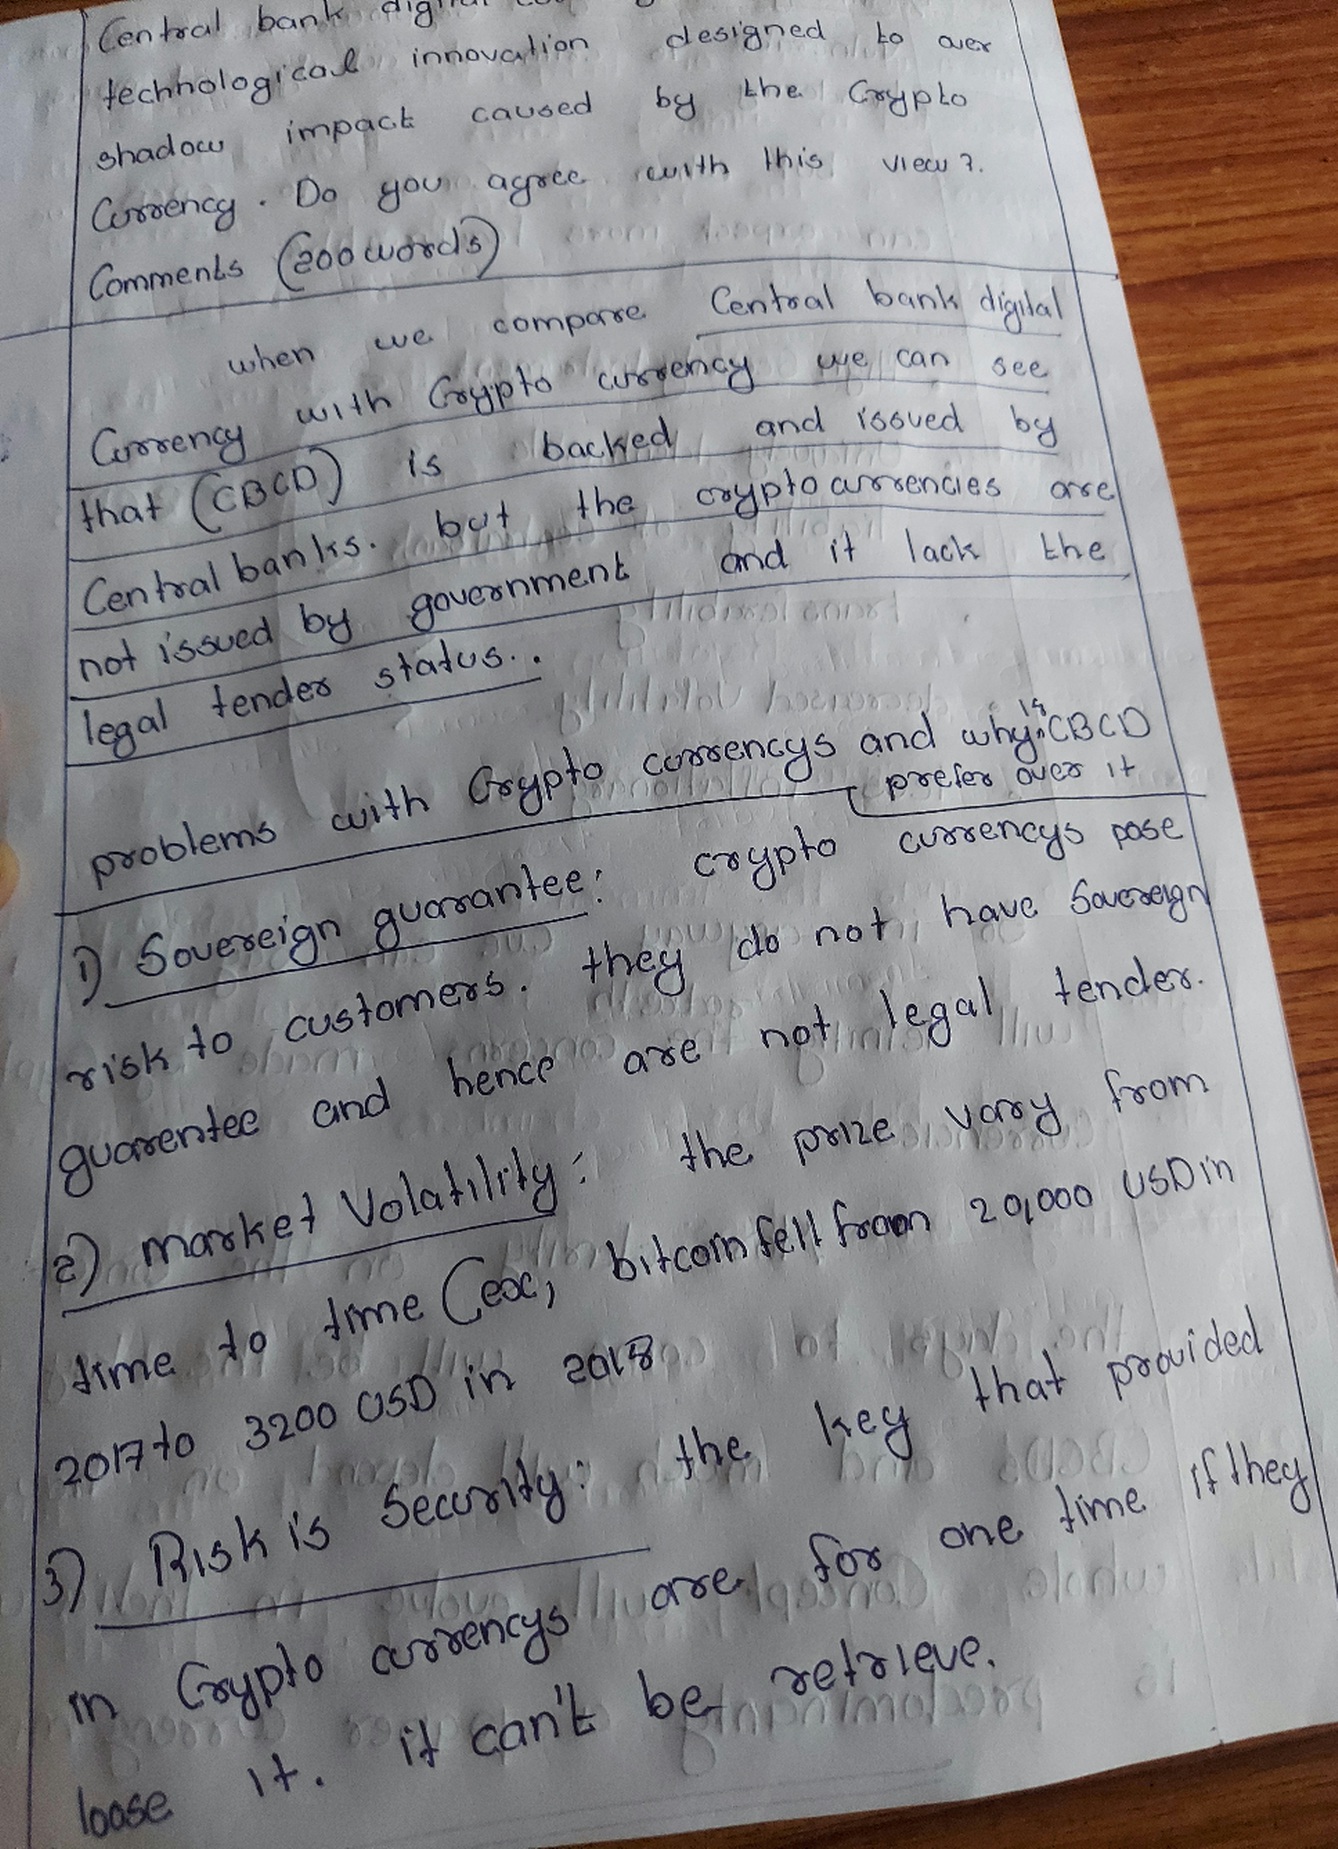 Central bank digital
technological innovation designed to over
shadow impact caused by the Crypto
Currency. Do you agree with this view?.
Comments (200 words)
when we compare Central bank digital
Currency with Crypto currency we can see
that (CBCD) is backed and issued by
Central banks. but the cryptocurrencies are
not issued by government and it lack the
legal tender status..
problems with Crypto currencys and why is CBCD
prefer over it
1) Sovereign guarantee: crypto currencys pose
risk to customers. they do not have Sovereign
guarentee and hence are not legal tender.
2) market Volatility: the prize vary from
time to time (ex, bitcoin fell from 20,000 USD in
2017 to 3200 USD in 2018
3) Risk is Security: the key that provided
in Crypto currencys are for one time if they
loose it. it can't be retrieve.